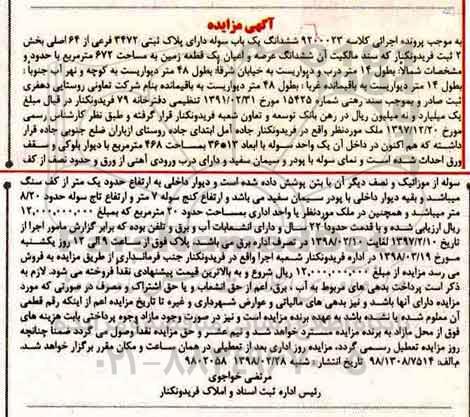 آگهی مزایده
به موجب پرونده اجرائی کلاسه ۹۲۰۰۰۲۳ ششدانگ یک باب سوله دارای پلاک ثبتی ۳۴۷۲ فرعی از ۶۴ اصلی بخش
۲ ثبت فریدونکنار که سند مالکیت آن ششدانگ عرصه و اعیان یک قطعه زمین به مساحت ۶۷۲ مترمربع با حدود و
مشخصات شمالاً: بطول ۱۴ متر درب و دیواریست به خیابان شرقاً: بطول ۴۸ متر دیواریست به کوچه و نهر آب جنوباً :
بطول ۱۴ متر دیواریست به باقیمانده غرباً : بطول ۴۸ متر دیواریست به باقیمانده بنام شرکت تعاونی روستایی دهفری
ثبت صادر و بموجب سند رهنی شماره ۱۵۴۲۵ مورخ ۱۳۹۱/۰۲/۳۱ تنظیمی دفترخانه ۷۹ فریدونکنار در قبال مبلغ
یک میلیارد و میلیون ریال در رهن بانک توسعه و تعاون شعبه فریدونکنار قرار گرفته و طبق نظر کارشناس رسمی
مورخ ۱۳۹۷/۱۲/۲۰ ملک موردنظر واقع در فریدونکنار جاده آمل ابتدای جاده روستای ازباران ضلع جنوبی جاده قرار
داشته که هم اکنون در داخل آن یک واحد سوله با ابعاد ۱۳×۳۶ بمساحت ۴۶۸ مترمربع با دیوار بلوکی و سقف
ورق احداث شده است و نمای سوله با پودر و سیمان سفید و دارای درب ورودی آهنی از ورق و حدود نصف از کف
سوله از موزائیک و نصف دیگر آن با بتن پوشش داده شده است و دیوار داخلی به ارتفاع حدود یک متر از کف سنگ
میباشد و بقیه دیوار داخلی با پودر سیمان سفید می باشد و ارتفاع کنج سوله ۷ متر و ارتفاع تاج سوله حدود ۸/۲۰
متر میباشد و همچنین در ملک موردنظر یا واحد اداری بمساحت حدود ۲۰ مترمربع که بمبلغ ۱۲,۰۰۰,۰۰۰,۰۰۰
ریال ارزیابی شده و با قدمت حدوداً ۲۲ سال و دارای انشعابات آب و برق و تلفن بوده که برابر گزارش مامور اجرا از
تاریخ ۱۳۹۷/۲/۱۰ لغایت ۱۳۹۸/۰۲/۱۰ در تصرف اداره برق می باشد. پلاک فوق از ساعت ۹ الی ۱۲ روز یکشنبه
مورخ ۱۳۹۸/۰۳/۱۹ در اداره فریدونکنار شعبه اجرا واقع در فریدونکنار جنب فرمانداری از طریق مزایده به فروش
می رسد مزایده از مبلغ ۱۲,۰۰۰,۰۰۰,۰۰۰ ریال شروع و به بالاترین قیمت پیشنهادی نقداً فروخته می شود. لازم به
ذکر است پرداخت بدهی های مربوط به آب ، برق، اعم از حق انشعاب و یا حق اشتراک و مصرف در صورتی که مورد
مزایده دارای آنها باشد و نیز بدهی های مالیاتی و عوارض شهرداری و غیره تا تاریخ مزایده اعم از اینکه رقم قطعی
آن معلوم شده یا نشده باشد به عهده برنده مزایده است و نیز در صورت وجود مازاد وجوه پرداختی بابت هزینه های
فوق از محل مازاد به برنده مزایده مسترد خواهد شد و نیم عشر و حق مزایده نقداً وصول می گردد ضمناً چنانچه
روز مزایده تعطیل رسمی گردد، مزایده روز اداری بعد از تعطیلی در همان ساعت و مکان مقرر برگزار خواهد شد.
م.الف: ۹۸/۱۳۰۸/۷۵۱۴ تاریخ انتشار: شنبه ۱۳۹۸/۰۲/۲۸ ۹۸۰۳۰۵۸
مرتضی خواجوی
رئیس اداره ثبت اسناد و املاک فریدونکنار